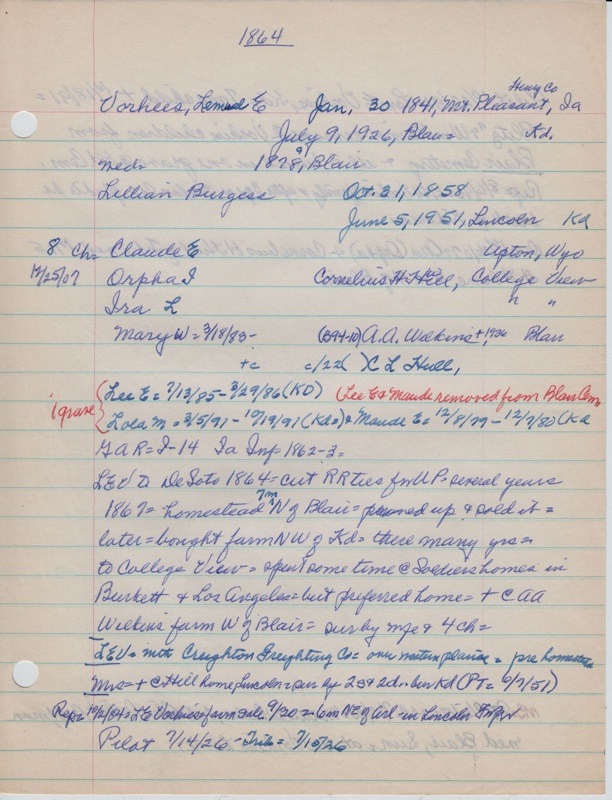 1864
Henry Co
Vorhees, Lemuel E Jan, 30 1841, Mt. Pleasant, Ia
July 9, 1926, Blair = Kd.
med = 1878, Blair
Lillian Burgess Oct. 31, 1858
June 5, 1951, Lincoln Kd
8 Ch = Claude E Upton, Wyo
12/25/07 Orpha I Cornelius H Hill, College View
Ira L " "
Mary W = 3/18/83 - (394-10) A.A. Wilkins + 1936 Blair
+c c/22( ) C L Hull,
1 grave { Lee E = 7/13/85 - 3/29/86 (KD) (Lee E & Maude removed from Blair Cem
Lola M = 3/5/91 - 10/19/91 (Kd =) & Maude E = 12/8/79 - 12/7/80 (Kd
GAR = I-14 Ia Inf = 1862-3 =
LEV to DeSoto 1864 = cut RR ties for UP = several years
1867 = homestead 7m N of Blair = proved up & sold it =
later = bought farm NW of Kd = there many yrs =
to College View = spent some time @ Soldiers homes in
Burkett & Los Angeles = but preferred home = + C AA
Wilkins farm W of Blair = sur by wife & 4 ch =
LEV = with Creighton Freighting Co = over western plains = pre homestead
Mrs = + c Hill home Lincoln = sur by 2s & 2d = bur Kd (PT = 6/7/51)
Rep = 10/2/84 = LE Vorhees = farm sale 9/30 = 6m NE of Arl - in Lincoln
Pilot 7/14/26 - Trib = 7/15/26